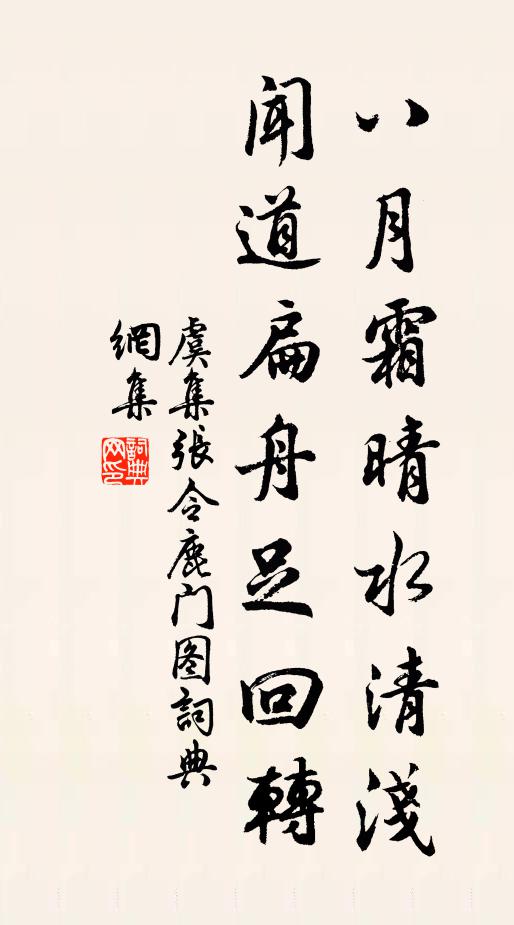 八月霜晴水清淺
闻道扁舟足回轉
虞集張令鹿门图詞典
網集
詞典网印